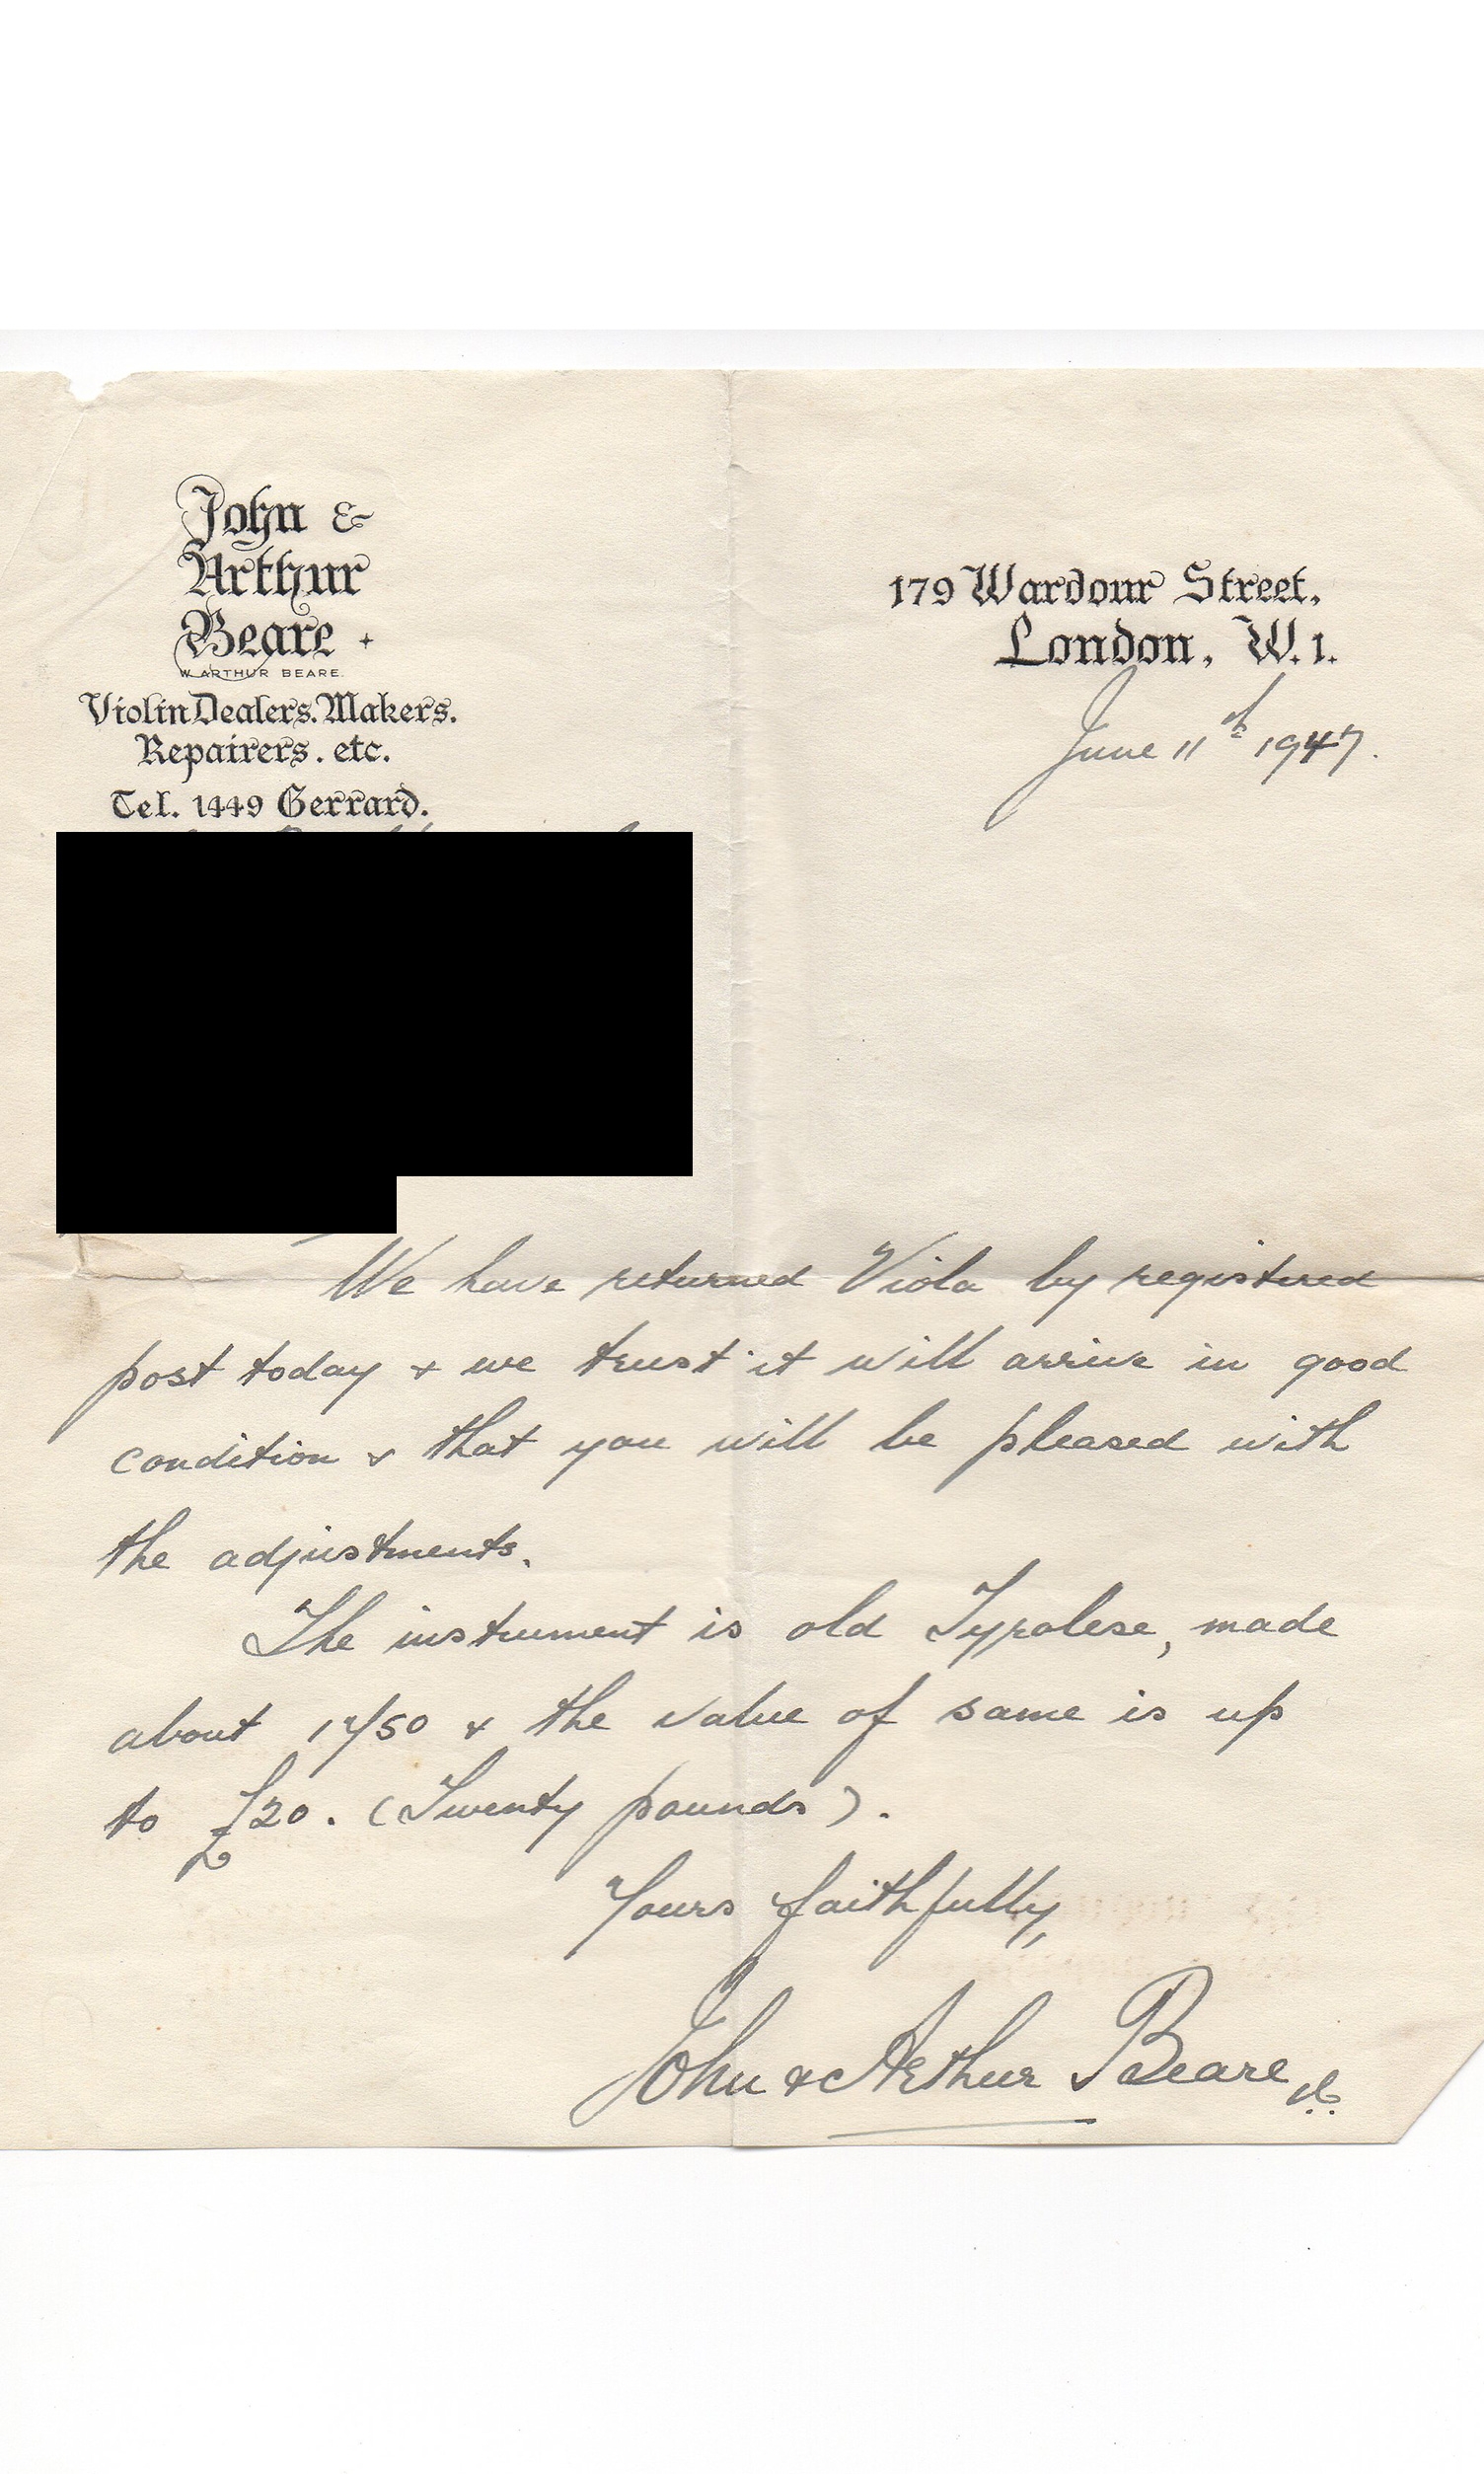 John &
Arthur
Beare
W. ARTHUR BEARE.
Violin Dealers. Makers.
Repairers. etc.
Tel. 1449 Gerrard.
179 Wardour Street,
London, W.1.
June 11th 1947.
We have returned Viola by registered
post today & we trust it will arrive in good
condition & that you will be pleased with
the adjustments.
The instrument is old Tyrolese, made
about 1750 & the value of same is up
to £20. (Twenty pounds).
Yours faithfully,
John & Arthur Beare